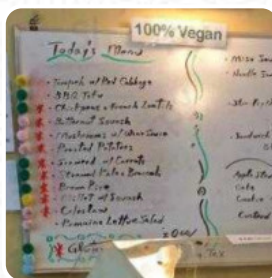 100% Vegan
Today's Menu
Tempeh w/ Red Cabbage
BBQ Tofu
Chickpeas + French Lentils
Butternut Squash
Mushrooms w/
Roasted Potatoes
Seaweed w/ Carrots
Steamed Kale + Broccoli
Brown Rice
Millet w/ Squash
Coleslaw
Romaine Lettuce Salad
Miso
Noodle
Sandwich
Apple
Cake
Cookie
Tax